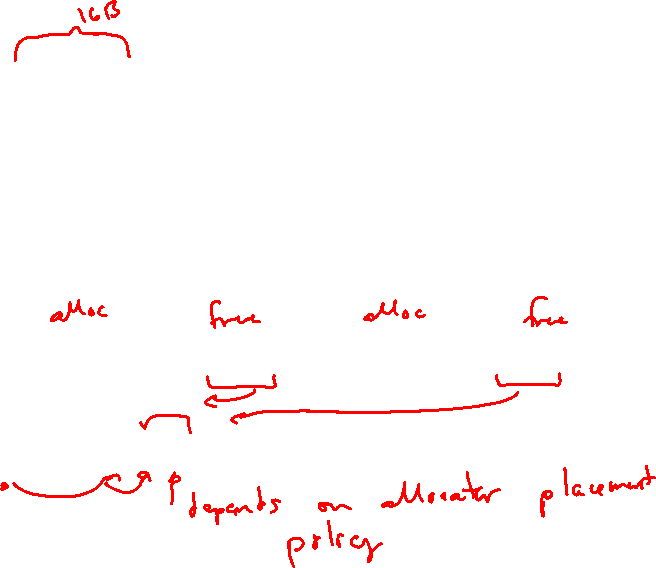 16B
alloc free alloc free
depends on allocator placement
policy